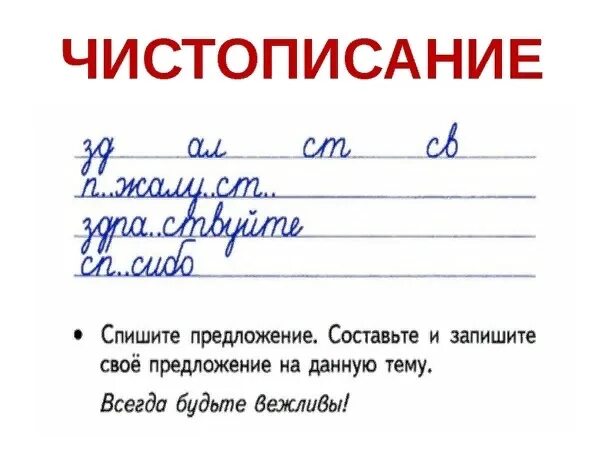 ЧИСТОПИСАНИЕ
зд ал ст св
п..жалу..ст..
здра..ствуйте
сп..сибо
• Спишите предложение. Составьте и запишите
своё предложение на данную тему.
Всегда будьте вежливы!